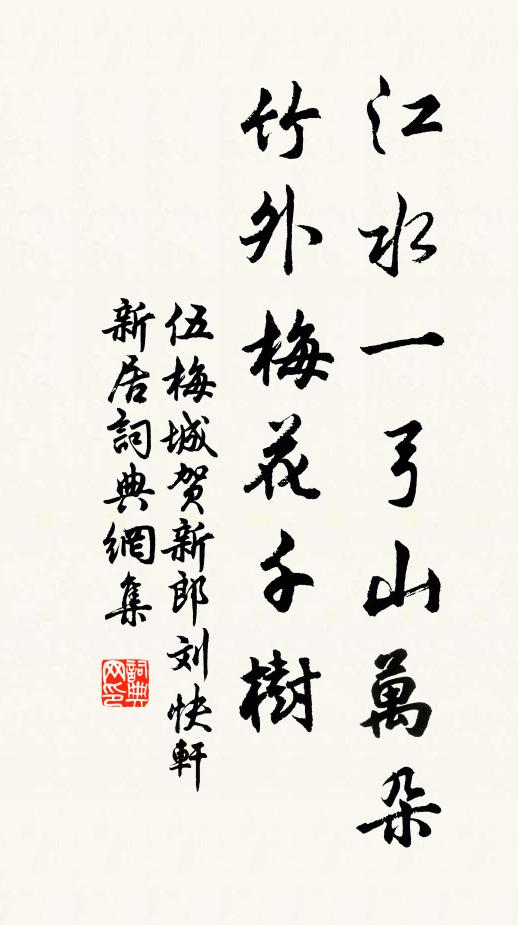 江水一弓山萬朵
竹外梅花千樹
伍梅城贺新郎刘快軒
新居詞典網集
詞典网印